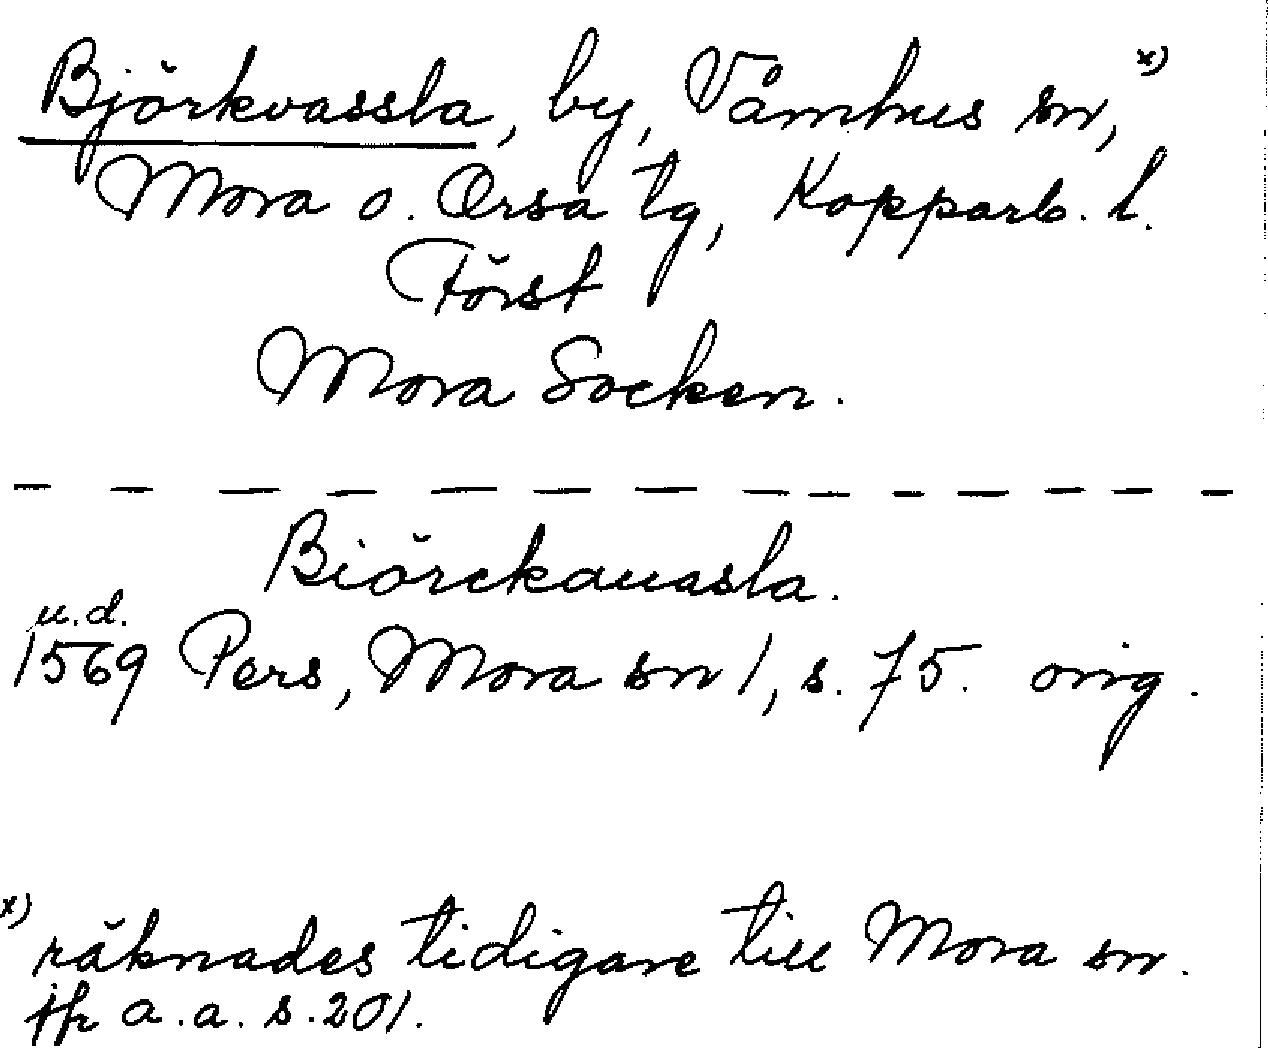 Björkvassla, by, Våmhus sn, x)
Mora o. Orsa tg, Kopparb. l.
Först
Mora Socken.
Biörckauasla.
u.d.
1569 Pers, Mora sn 1, s. 75. orig.
x) räknades tidigare till Mora sn.
jfr a.a. s. 201.